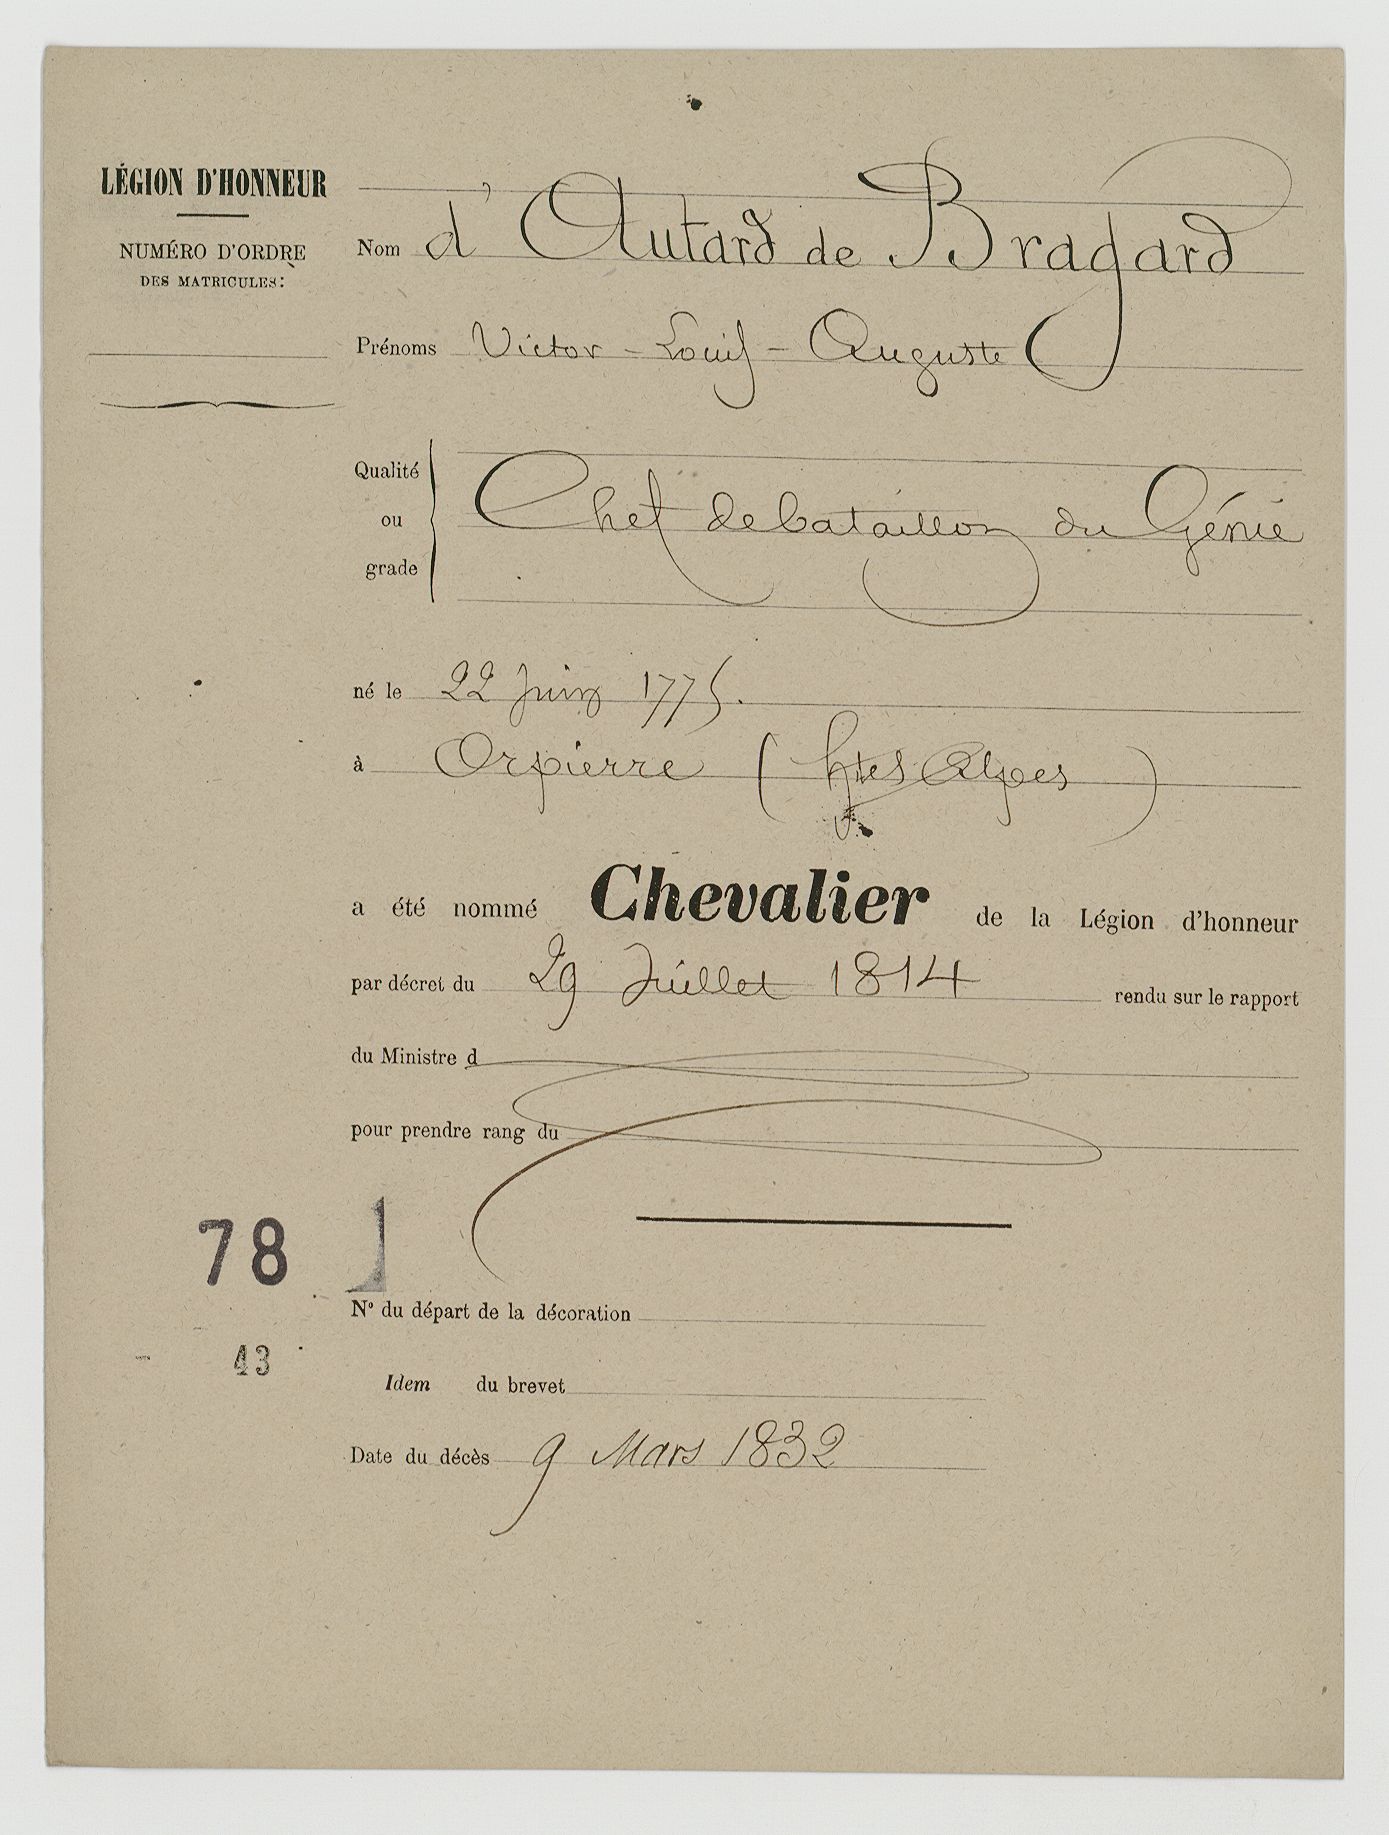 LÉGION D'HONNEUR
NUMÉRO D'ORDRE
DES MATRICULES:
Nom d'Autard de Bragard
Prénoms Victor - Louis - Auguste
Qualité
ou
grade
Chef de bataillon du Génie
né le 22 Juin 1775.
à Orpierre (Htes Alpes)
a été nommé Chevalier de la Légion d'honneur
par décret du 29 Juillet 1814 rendu sur le rapport
du Ministre d
pour prendre rang du
78
N° du départ de la décoration
43
Idem du brevet
Date du décès 9 Mars 1832